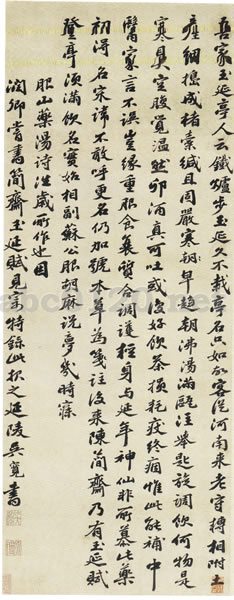 吾家玉延亭人云鐵爐步玉延久不栽亭名只如故客從河南來老守轉相附土
細搗成楮素緘且固嚴寒朝早趨朝沸湯滿甌注舉匙旋調飲何物是
寒具空腹覺溫然卯酒真可吐或復好飲茶損耗疾終痼惟此能補中
醫家言不誤豈緣重服食養質合調護拄身與延年神仙非所慕此藥
初得名宋諱不敢呼更名仍加號本草為箋註後來陳簡齋乃有玉延賦
登亭須滿飲名實始相副蘇公服胡麻說夢幾時寤
服山藥湯詩往歲所作近因
潤卿嘗書簡齋玉延賦見寄特錄此報之延陵吳寬書